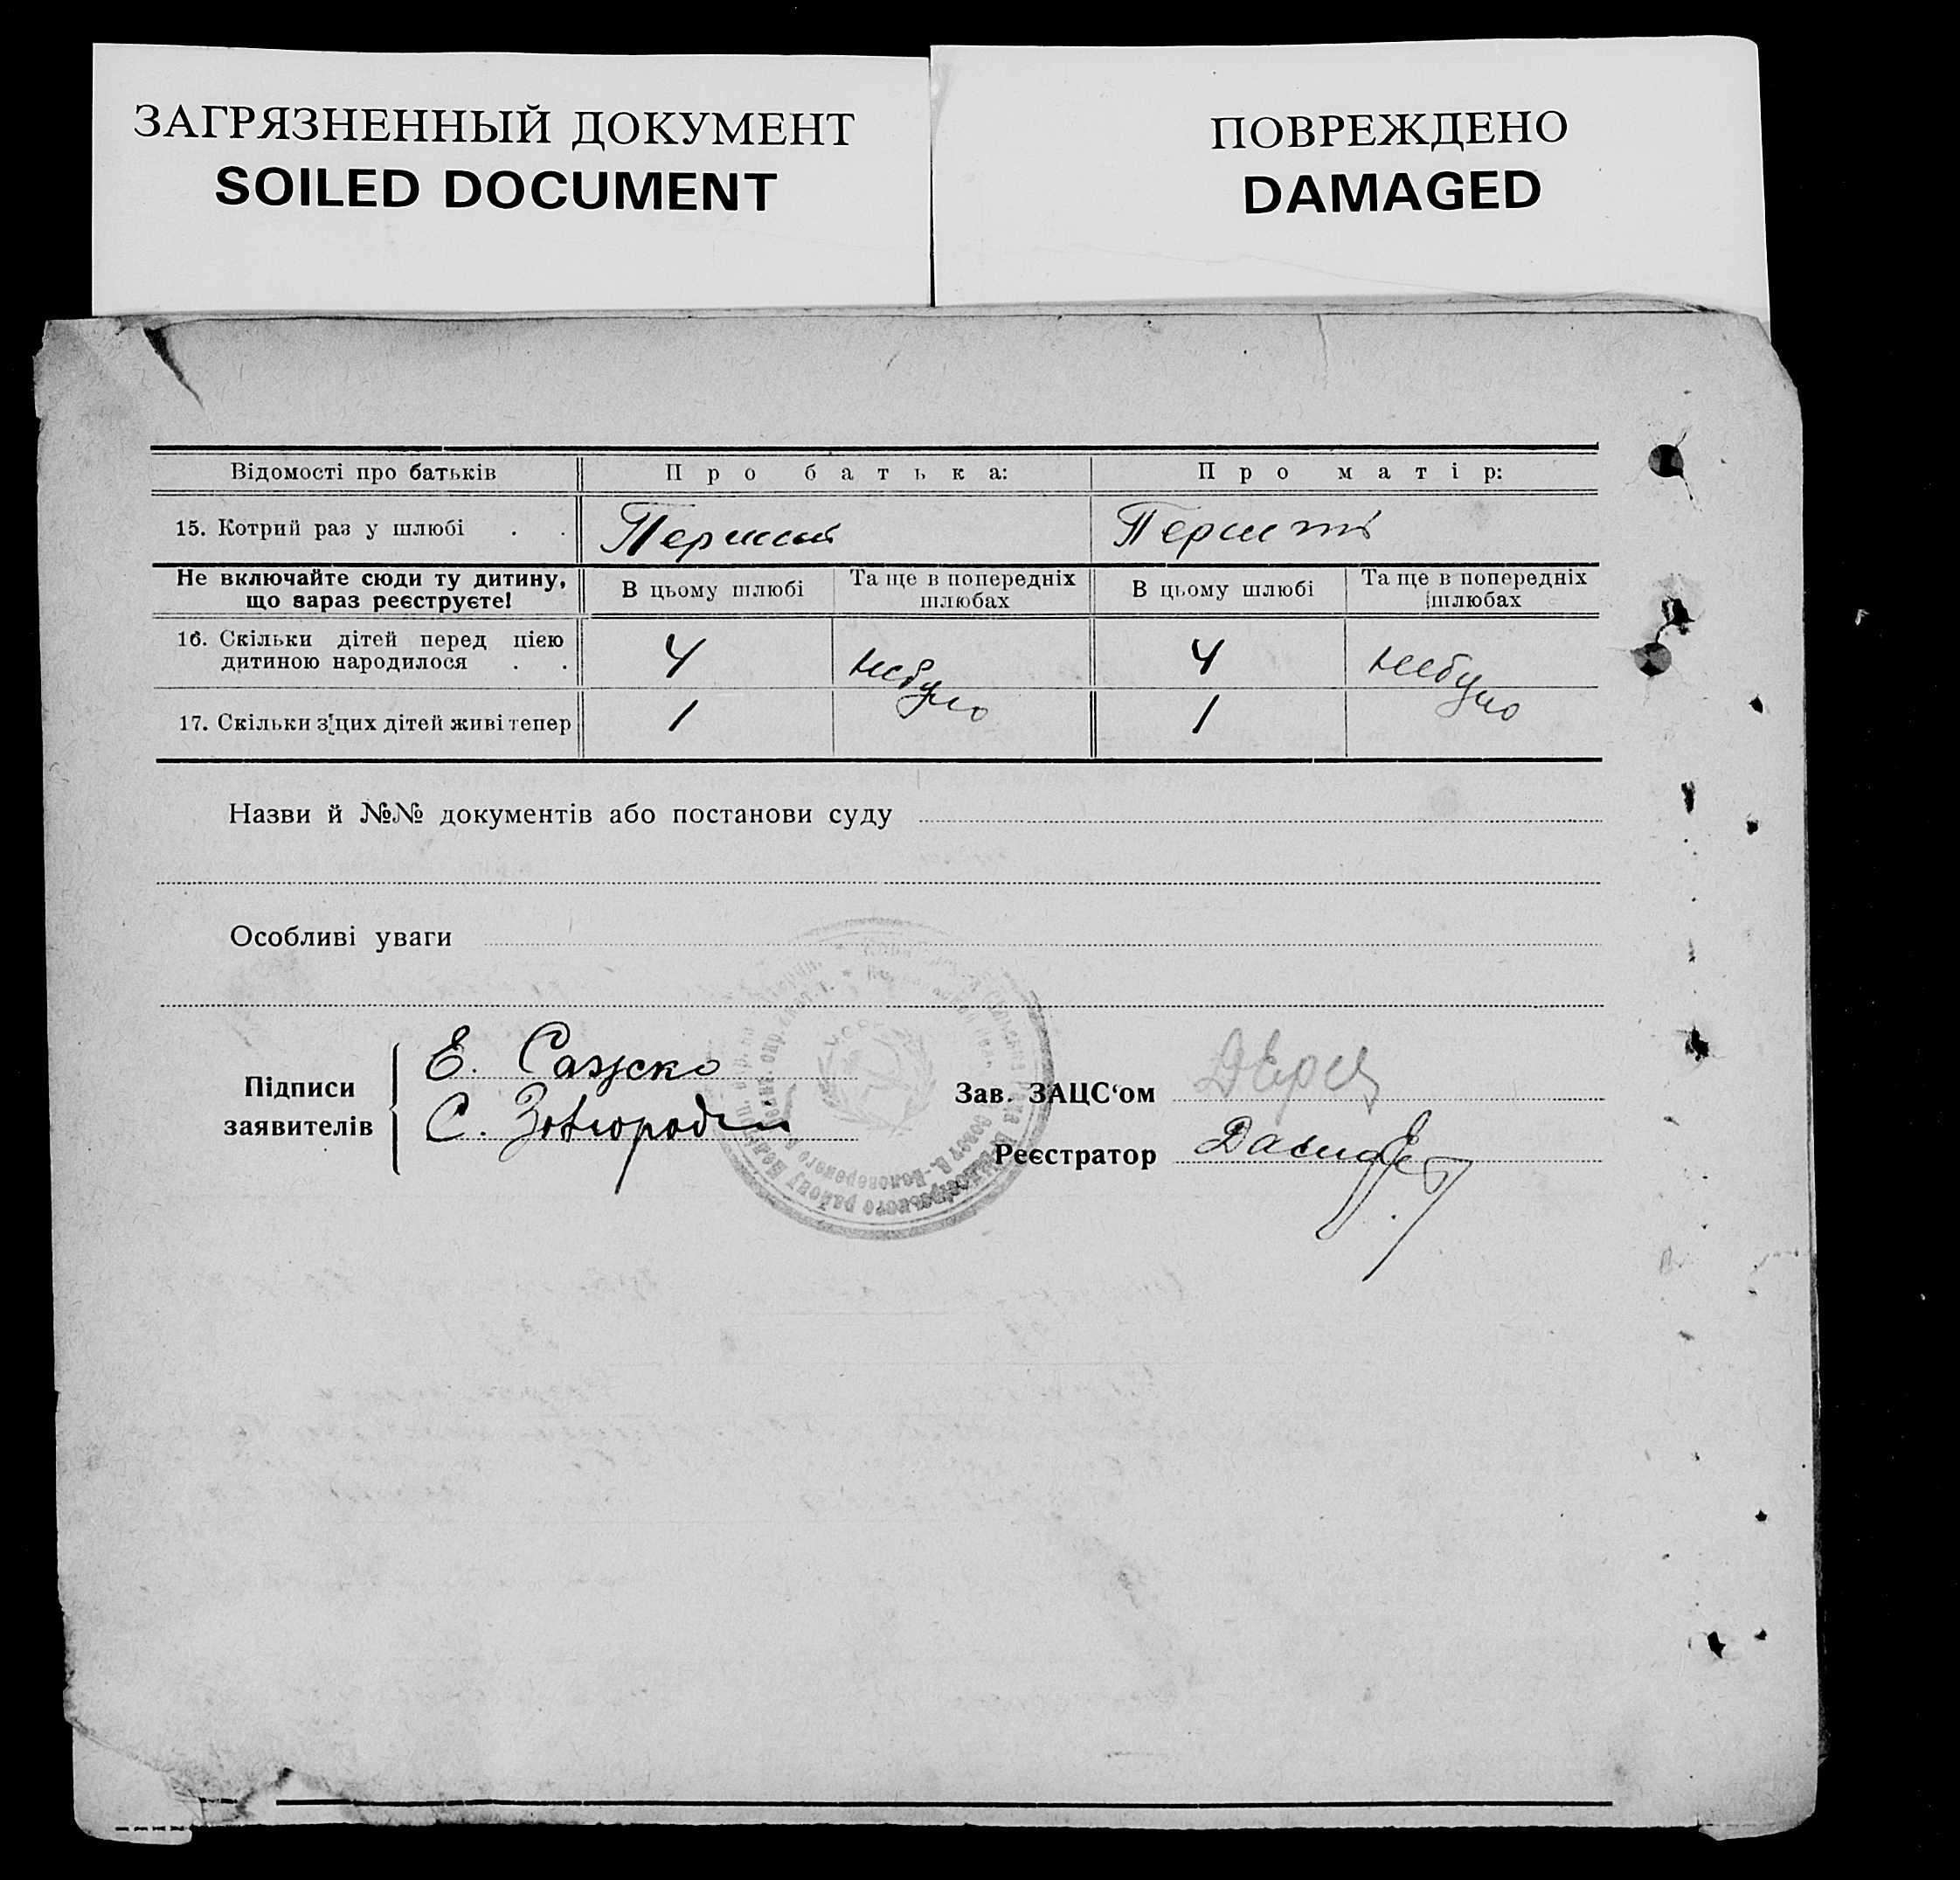 ЗАГРЯЗНЕННЫЙ ДОКУМЕНТ
SOILED DOCUMENT
ПОВРЕЖДЕНО
DAMAGED
Відомості про батьків Про батька: Про матір:
15. Котрий раз у шлюбі . .
Не включайте сюди ту дитину, що зараз реєструєте! В цьому шлюбі Та ще в попередніх шлюбах В цьому шлюбі Та ще в попередніх шлюбах
16. Скільки дітей перед цією дитиною народилося . . 4 небуло 4 небуло
17. Скільки з цих дітей живі тепер 1 1
Назви й №№ документів або постанови суду
Особливі уваги
Підписи заявителів
Е.
С.
Зав. ЗАЦС‘ом
Реєстратор